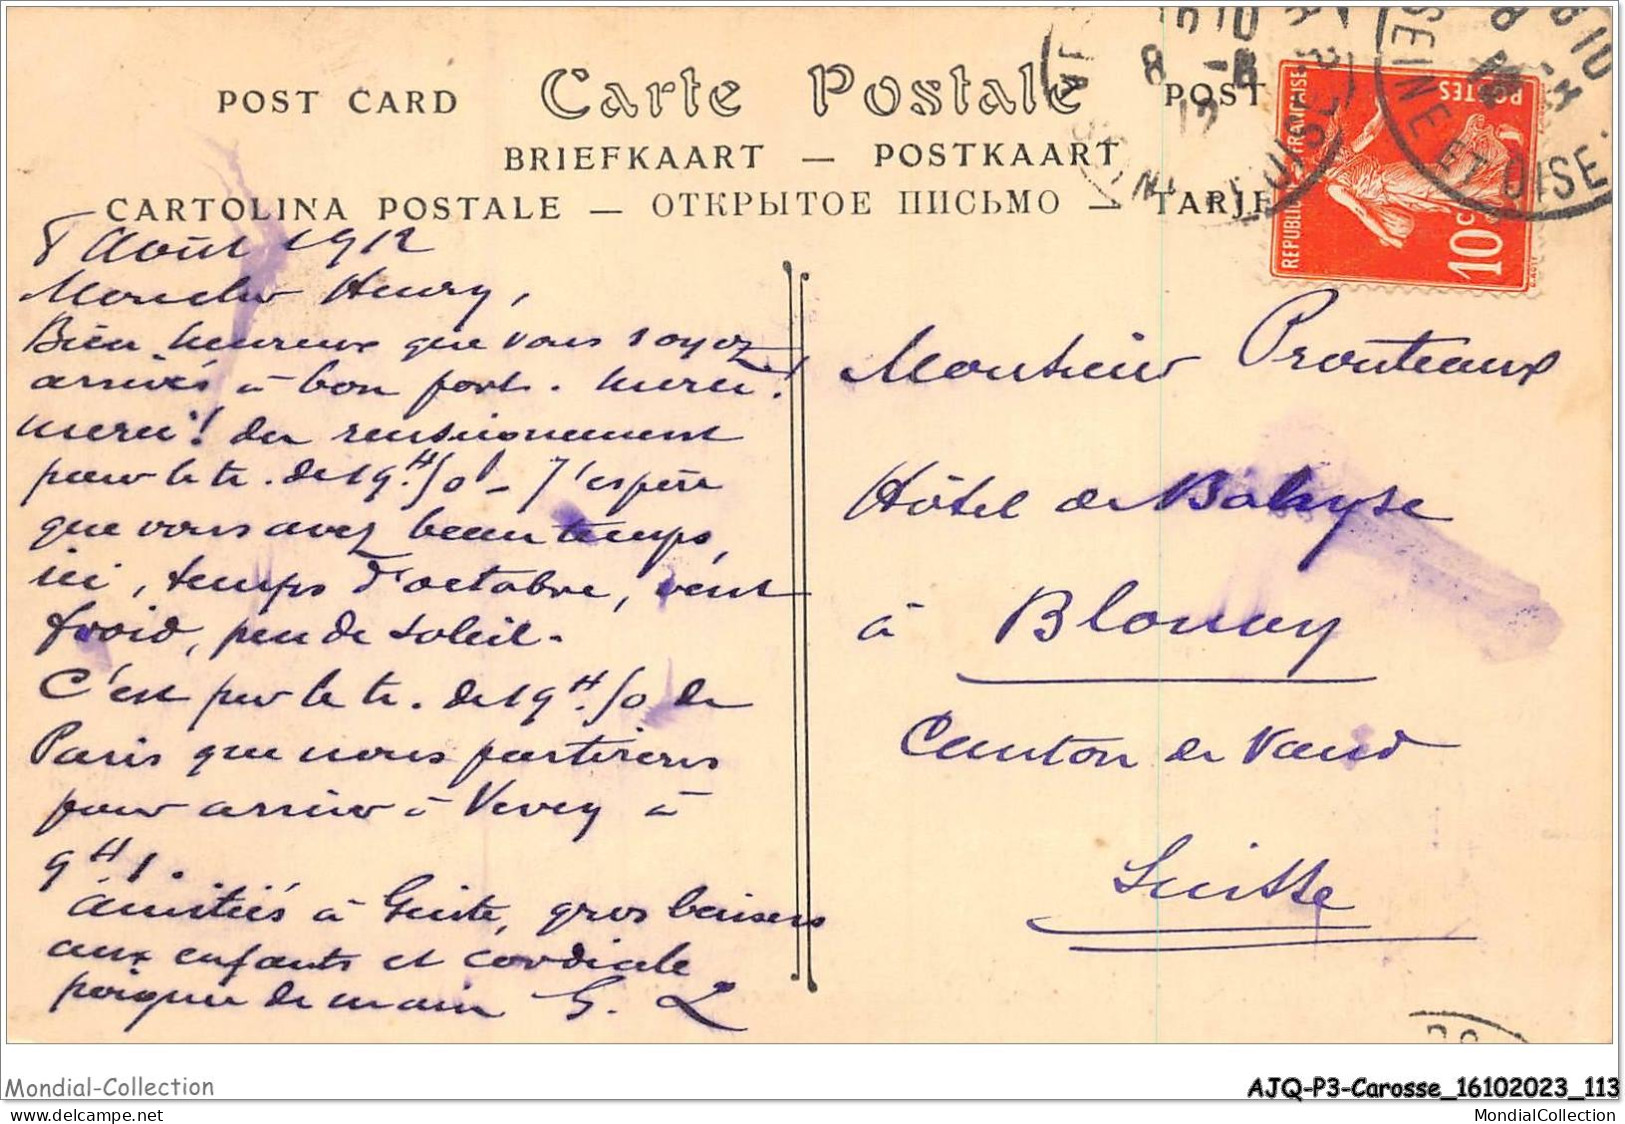 POST CARD Carte Postale POST
BRIEFKAART — POSTKAART
CARTOLINA POSTALE — ОТКРЫТОЕ ПИСЬМО — TARJE
8 Août 1912
Mon cher Henry,
Bien heureux que vous soyez
arrivés à bon port. Merci!
merci! du renseignement
pour le tr. de 19H50 - J'espère
que vous avez beau temps,
ici, temps d'octobre, vent
froid, peu de soleil.
C'est par le tr. de 19H.50 de
Paris que nous partirons
pour arriver à Vevey à
9H1.
Amitiés à Guite, gros baisers
aux enfants et cordiale
poignée de main G. L
REPUBLIQUE FRANÇAISE
POSTES
10c
SEINE ET OISE
8 -8
12
Monsieur Prouteaux
Hôtel de
à Blonay
Canton de Vaud
Suisse
Mondial-Collection
AJQ-P3-Carosse_16102023_113
MondialCollection